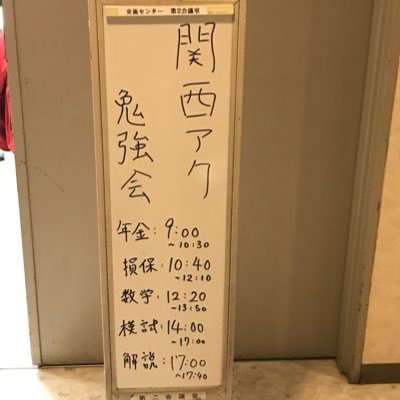 交流センター 第2会議室
関西アク
勉強会
年金:9:00
~10:30
損保:10:40
~12:10
数学:12:20
~13:50
模試:14:00
~17:00
解説:17:00
~17:40
第二会議室